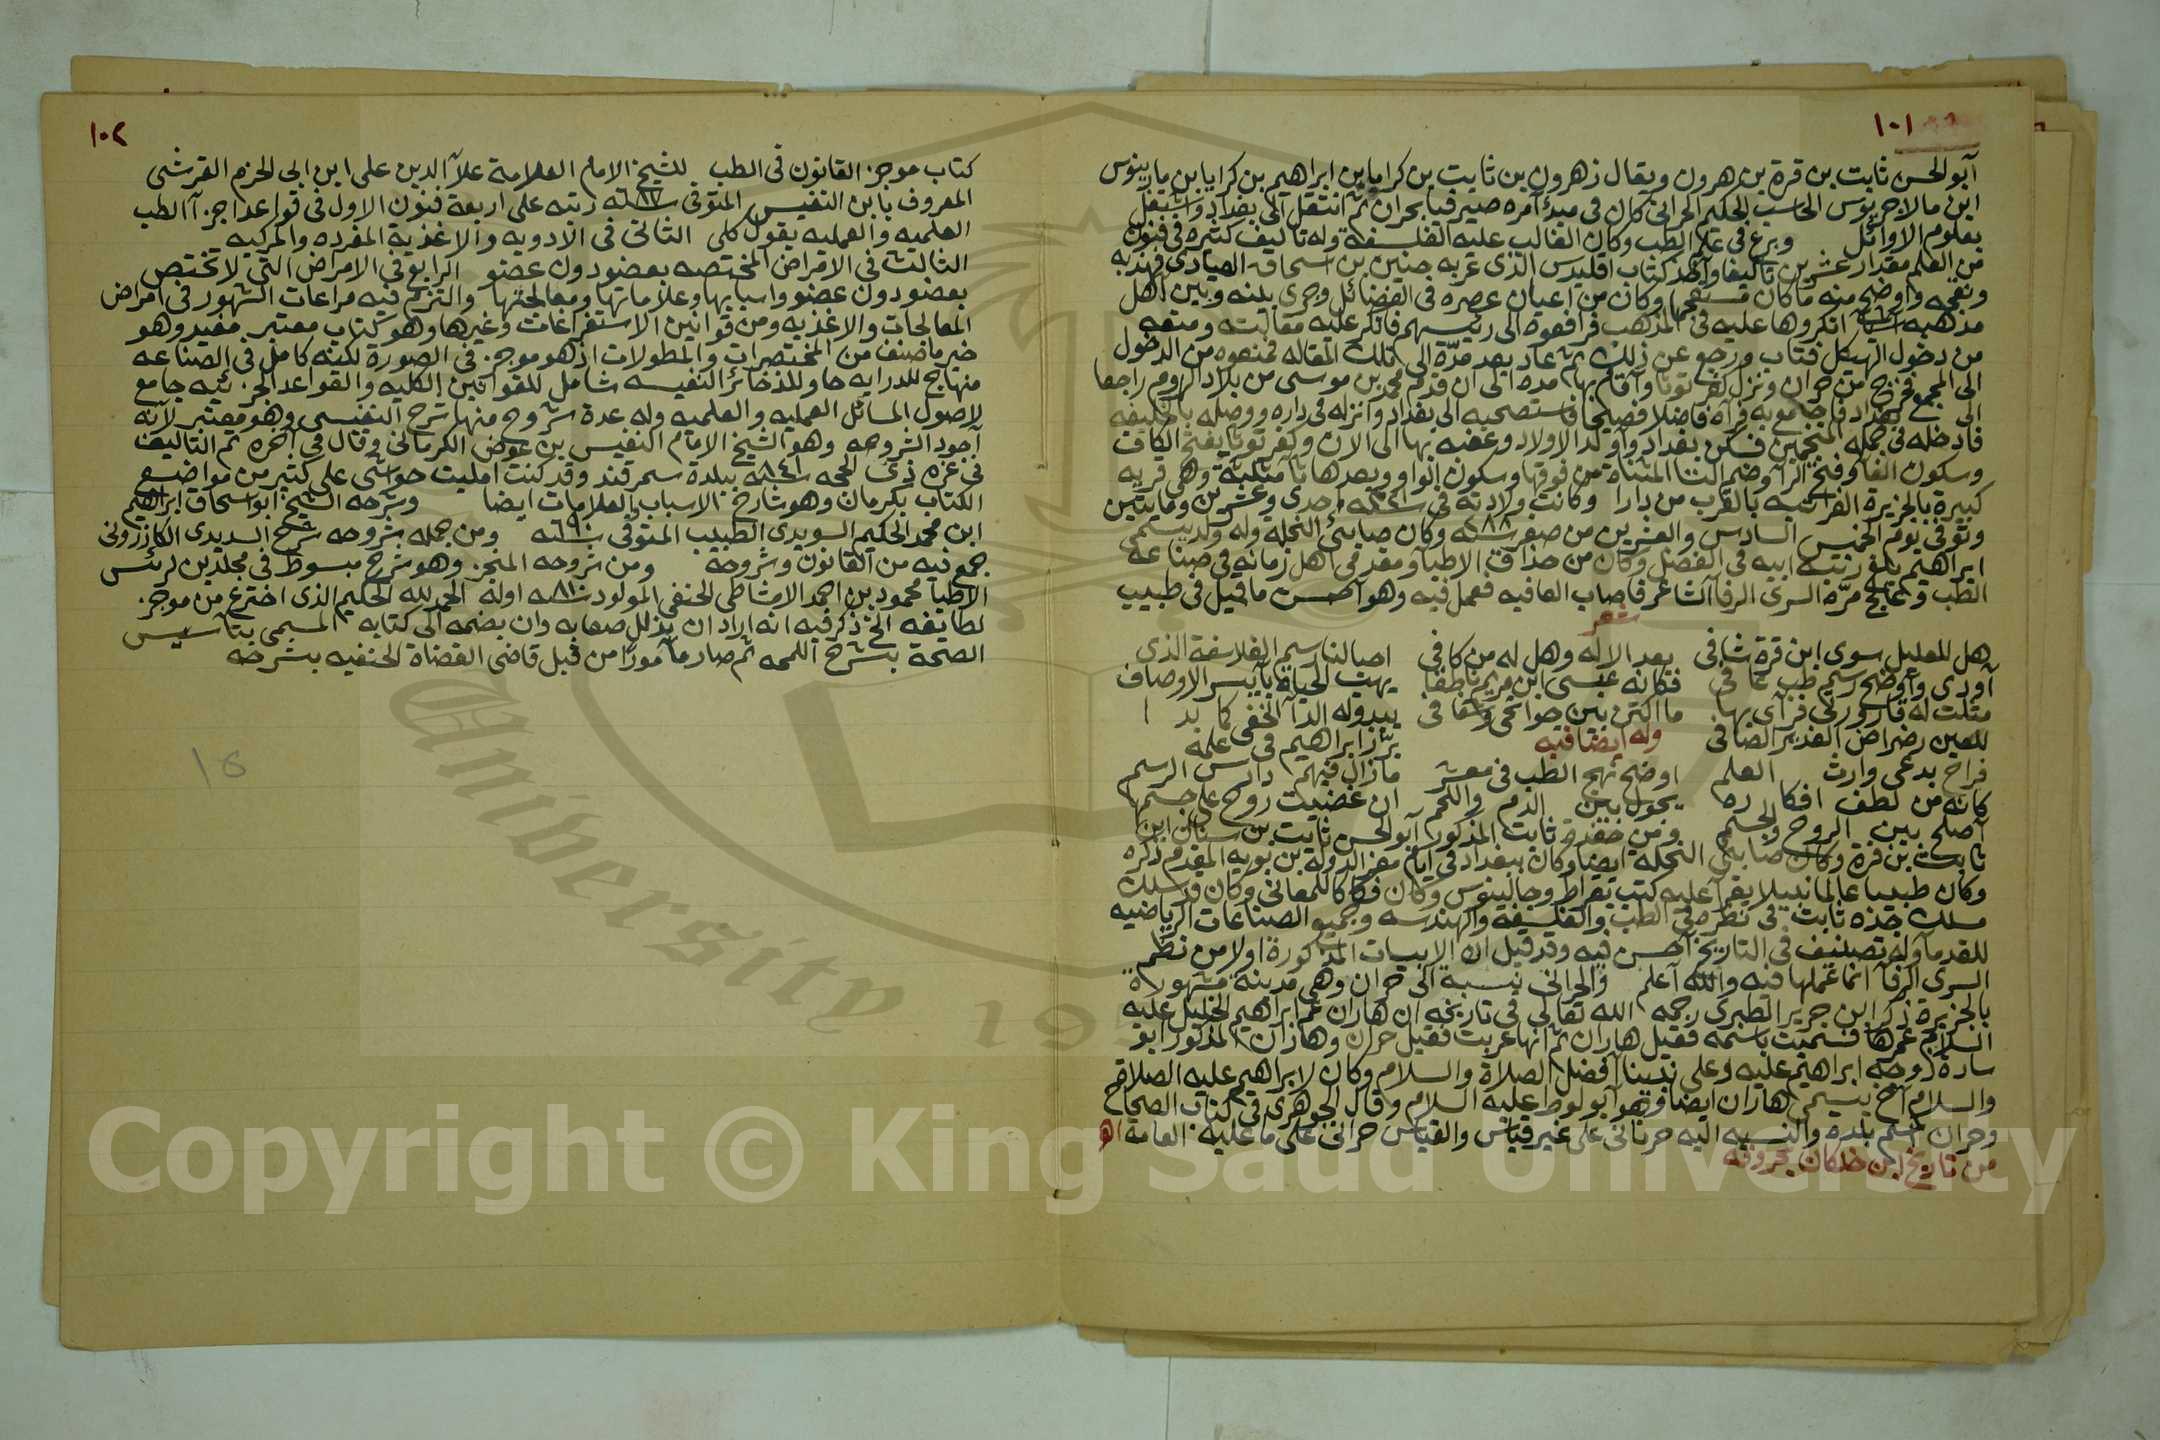 ١٠١
آبو الحسن ثابت بن قرة بن هرون ويقال زهرون بن ثابت بن كرايا بن ابراهيم بن كرايا بن مارينوس
ابن مالاجريوس الحاسب الحكيم الحراني كان في مبدٔ امره صيرفيا بحران ثم انتقل الى بغداد واشتغل
بعلوم الاوائل وبرع في علم الطب وكان الغالب عليه الفلسفة وله تاليف كثيره في فنون
من العلم مقدار عشرين تاليفا واخذ كتاب اقليدس الذى عربه حنين بن اسحاق العبادى فهذبه
ونقحه واوضح منه ما كان مستعجما وكان من اعيان عصره في الفضائل وجرى بينه وبين اهل
مذهبه اشيا انكروها عليه في المذهب فرافعوه الى رئيسهم فانكر عليه مقالته ومنعه
من دخول الهيكل فتاب ورجع عن ذلك ثم عاد بعد مدّة الى تلك المقاله فمنعوه من الدخول
الى المجمع فخرج من حران ونزل كفرتوثا واقام بها مده الى ان قدم محمد بن موسى من بلاد الروم راجعا
الى بغداد فاجتمع به فرآه فاضلا فصيحا فاستصحبه الى بغداد وانزله في داره ووصله بالخليفه
فادخله في جمله المنجمين فسكن بغداد واولد الاولاد وعقبه بها الى الان وكفرتوثا بفتح الكاف
وسكون الفا وفتح الرا وضم التا المثناة من فوقها وسكون الواو وبعدها ثا مثلثة وهي قريه
كبيرة بالجزيرة الفراتيه بالقرب من دارا وكانت ولادته في سنة ٢٢١ه احدى وعشرين ومايتين
وتوفى يوم الخميس السادس والعشرين من صفر سنة ٢٨٨ه وكان صابئى النحله وله ولد يسمى
ابراهيم بلغ رتبه ابيه في الفضل وكان من حذاق الاطبا ومقدمي اهل زمانه في صناعة
الطب وعالج مرّه السرى الرفا الشاعر فاصاب العافيه فعمل فيه وهو احسن ما قيل في طبيب
شعر
هل للعليل سوى ابن قرة شافى بعد الاله وهل له من كافى احيا لنا رسم الفلاسفة الذى
أودى واوضح رسم طب عافى فكانه عيسى ابن مريم ناطقا يهب الحياة بآيسر الاوصاف
مثلت له قارورتى فرآى بها ما اكتن بين جوانحى وشغافى يبدو له الدآ الخفى كما بدا
للعين رضراض الغدير الصافى وله ايضا فيه برّز ابراهيم في علمه
فراح يدعى وارث العلم اوضح نهج الطب في معشر ما زال فيهم دارس الرسم
كانه من لطف افكاره يجول بين الدم واللحم ان غضبت روح على جسمها
آصلح بين الروح والجسم ومن حفدة ثابت المذكور آبو الحسن ثابت بن سنان ابن
ثابت بن قرة وكان صابئي النحله ايضا وكان ببغداد في ايام معز الدولة بن بويه المقدم ذكره
وكان طبيبا عالما نبيلا يقرآ عليه كتب بقراط وجالينوس وكان فكاكا للمعانى وكان قد سلك
مسلك جده ثابت في نظره في الطب والفلسفة والهندسه وجميع الصناعات الرياضيه
للقدما وله تصنيف في التاريخ احسن فيه وقد قيل ان الابيات المذكورة اولا من نظم
السرى الرفآ انما عملها فيه والله آعلم والحرانى نسبة الى حران وهى مدينة مشهورة
بالجزيرة ذكر ابن جرير الطبرى رحمه الله تعالى في تاريخه ان هاران عم ابراهيم الخليل عليه
السلام عمرها فسميت باسمه فقيل هاران ثم انها عربت فقيل حران وهاران المذكور ابو
سارة زوجة ابراهيم عليه وعلى نبينا افضل الصلاة والسلام وكان لابراهيم عليه الصلاة
والسلام آخ يسمى هاران ايضا وهو آبو لوط عليه السلام وقال الجوهرى في كتاب الصحاح
وحران اسم بلده والنسبه اليه حرنانى على غير قياس والقياس حرانى على ما عليه العامة اه
من تاريخ ابن خلكان بحروفه
١٠٢
كتاب موجز القانون في الطب للشيخ الامام العلامة علآ الدين على ابن ابى الحزم القرشى
المعروف بابن النفيس المتوفى سنة ٦٨٧ه رتبه على اربعة فنون الاول في قواعد اجزآ الطب
العلميه والعمليه بقول كلى الثانى في الادويه والاغذية المفرده والمركبه
الثالث في الامراض المختصه بعضو دون عضو الرابع في الامراض التي لا تختص
بعضو دون عضو واسبابها وعلاماتها ومعالجتها والتزم فيه مراعات المشهور في امراض
المعالجات والاغذيه ومن قوانين الاستفراغات وغيرها وهو كتاب معتبر مفيد وهو
خير ما صنف من المختصرات والمطولات اذ هو موجز في الصورة لكنه كامل في الصناعه
منهاج للدرايه حاو للذخائر النفيسه شامل للقوانين الكليه والقواعد الجزئيه جامع
لاصول المسائل العمليه والعلميه وله عدة شروح منها شرح النفيسى وهو معتبر لانه
آجود الشروحه وهو الشيخ الامام النفيس بن عوض الكرمانى وقال في آخره تم التاليف
في غره ذى الحجه سنة ٨٤١ه ببلدة سمرقند وقد كنت امليت حواشى على كثير من مواضع
الكتاب بكرمان وهو شارح الاسباب والعلامات ايضا وشرحه الشيخ ابو اسحاق ابراهيم
ابن محمد الحكيم السويدى الطبيب المتوفى سنة ٦٩٠ه ومن جمله شروحه شرح السديدى الكازرونى
جمع فيه من القانون وشروحه ومن شروحه المنجز وهو شرح مبسوط في مجلدين لرئيس
الاطبا محمود بن احمد الامشاطى الحنفى المولود سنة ٨١٠ه اوله الحمد لله الحكيم الذى اخترع من موجز
لطايفه الخ ذكر فيه انه اراد ان يذلل صعابه وان يضمه الى كتابه المسمى بتآسيس
الصحة بشرح اللمحه ثم صار مآمورًا من قبل قاضى القضاة الحنفيه بشرحه
١٥
University
195
Copyright © King Saud University